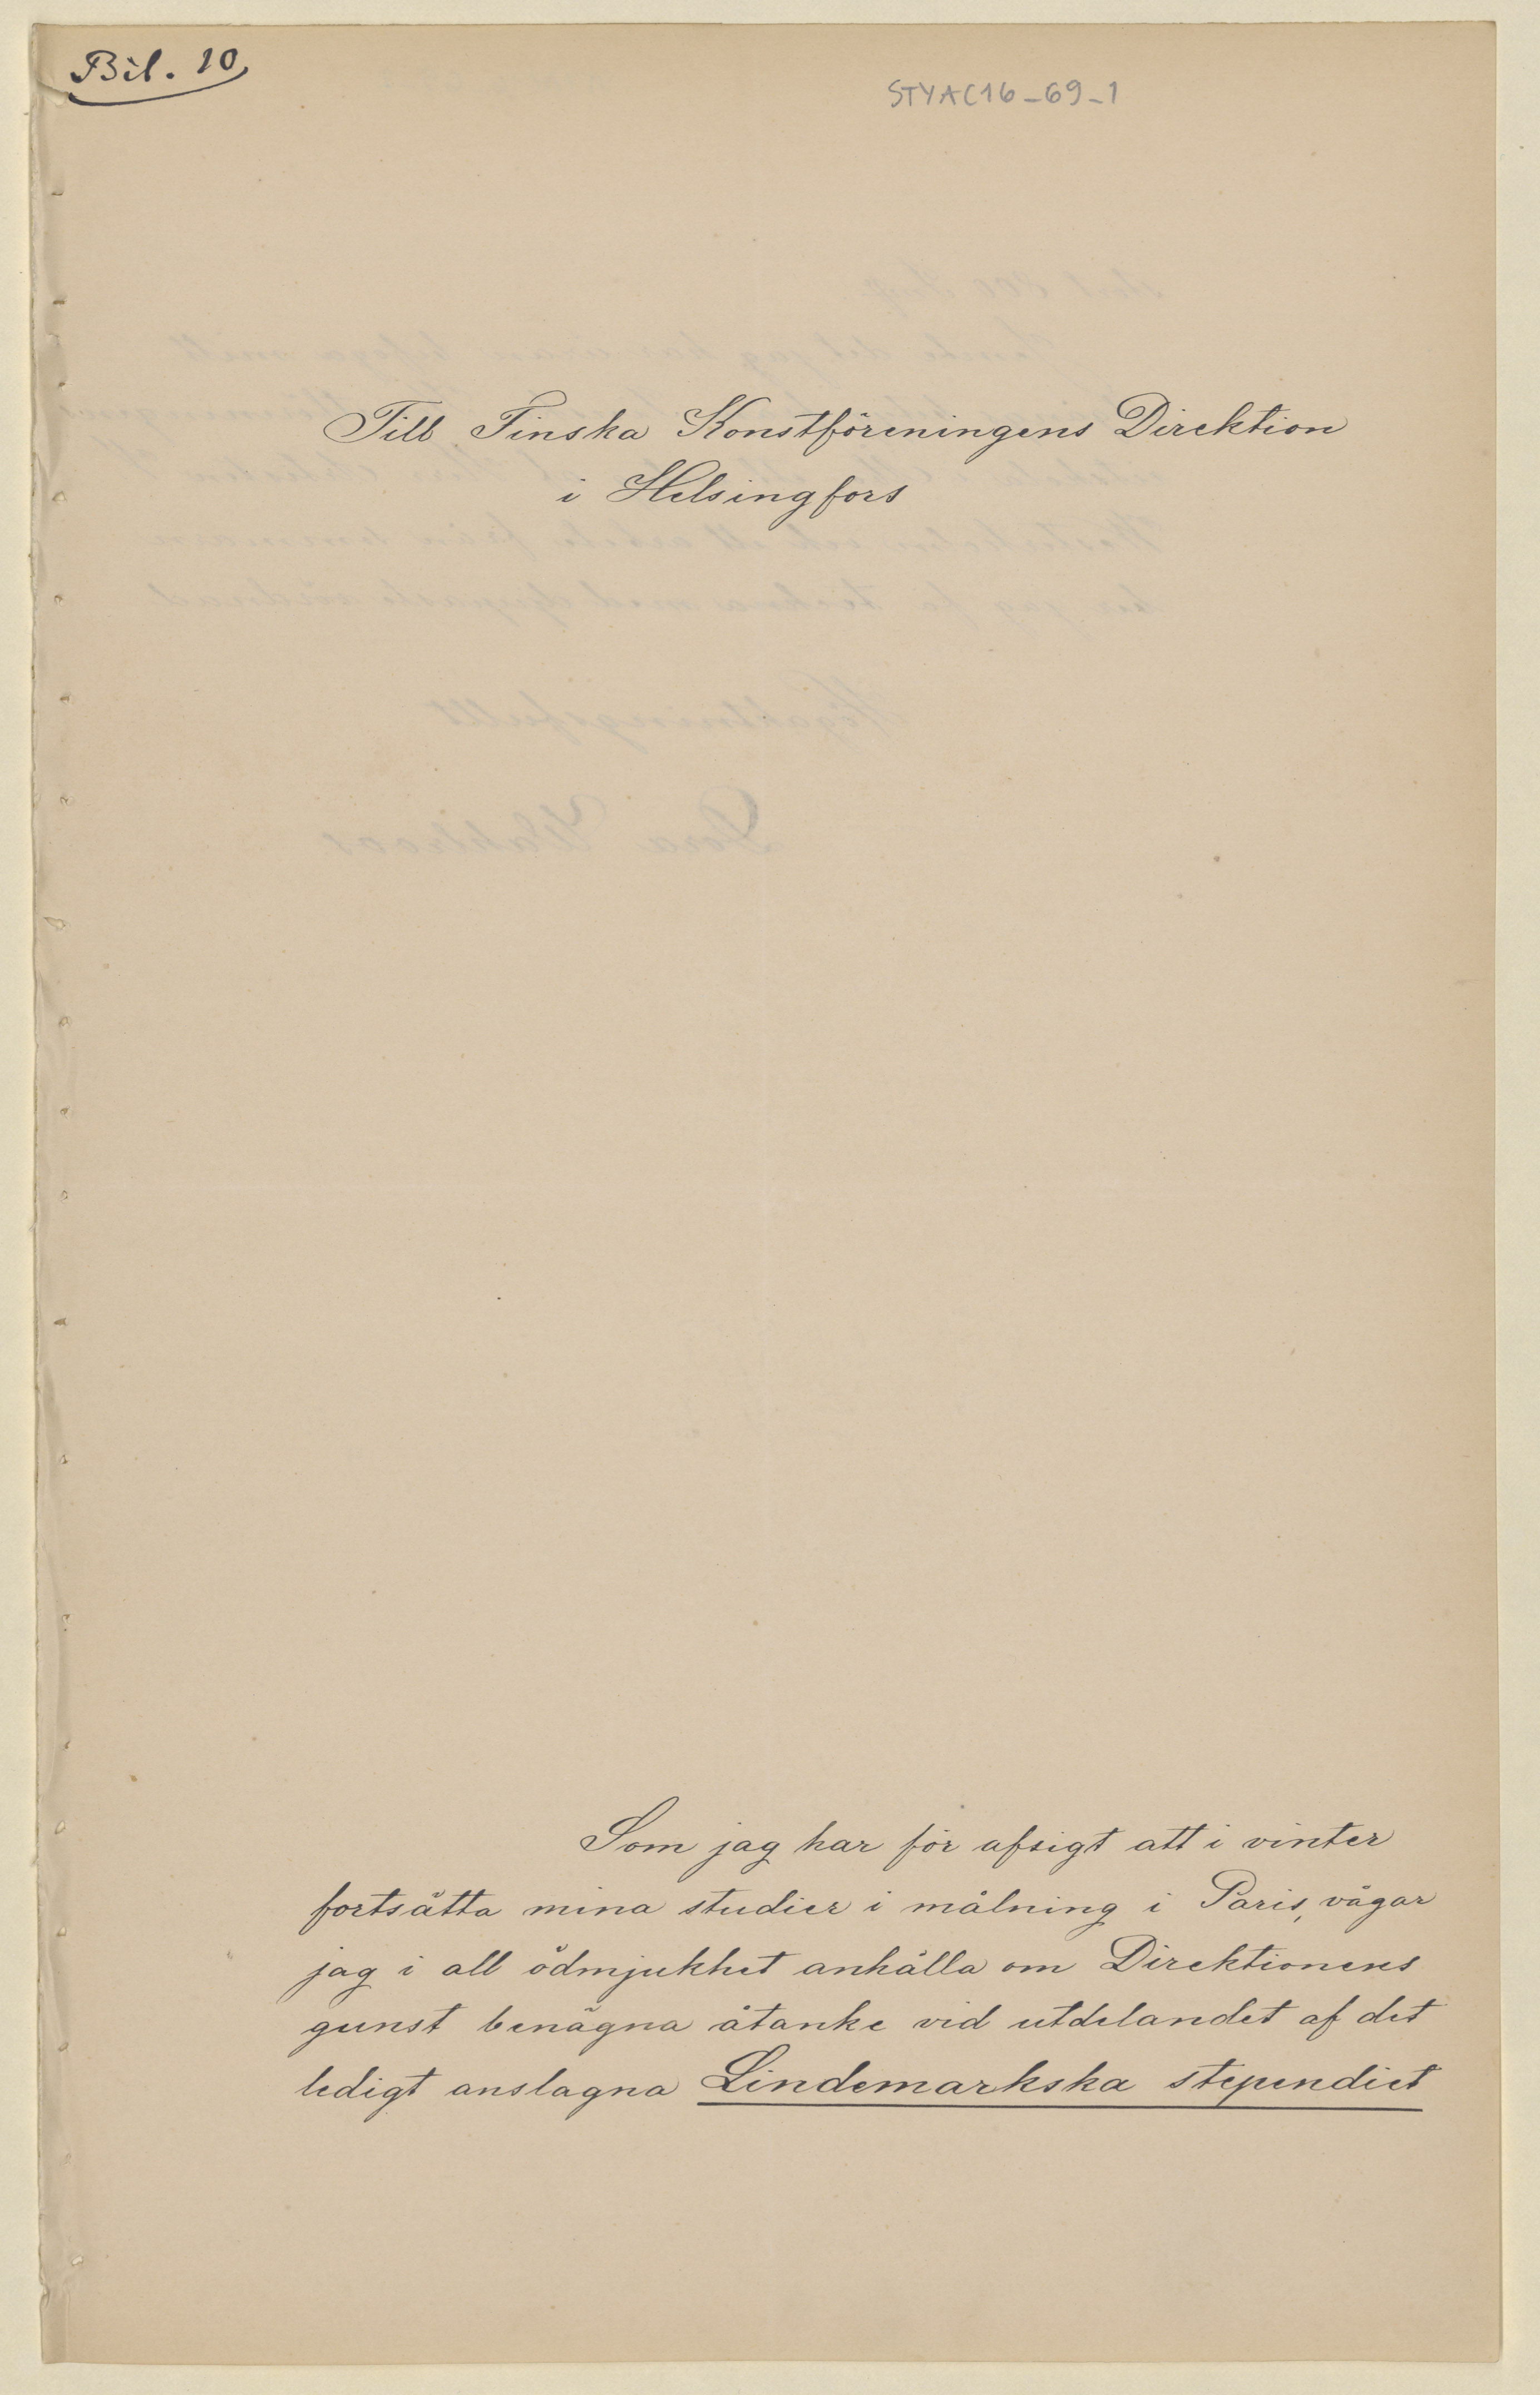 Bil. 10
STYAC16-69-1
Till Finska Konstföreningens Direktion
i Helsingfors
Som jag har för afsigt att i vinter
fortsätta mina studier i målning i Paris, vågar
jag i all ödmjukhet anhålla om Direktionens
gunst benägna åtanke vid utdelandet af det
ledigt anslagna Lindemarkska stependiet